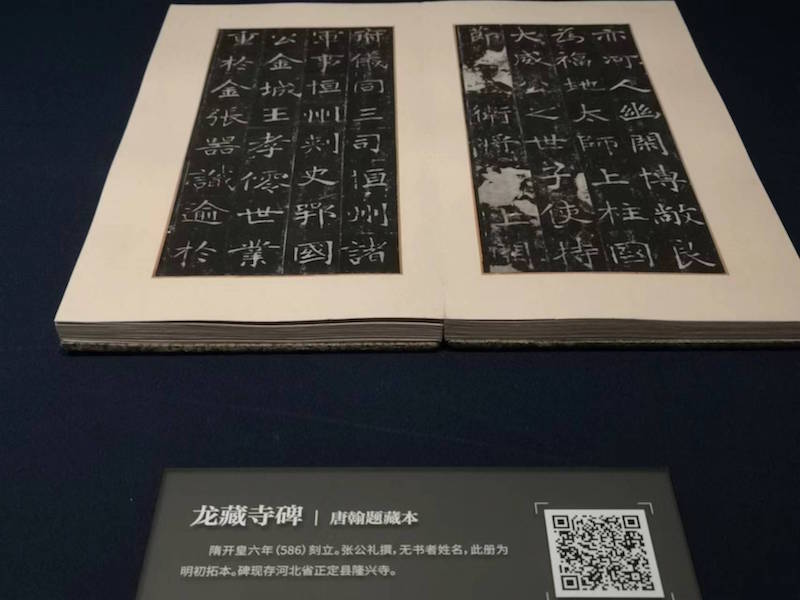 亦河人幽閑博敞良
為福地太師上柱國
大威公之世子使持
節衛將上開
府儀同三司恒州諸
軍事恒州刺史鄂國
公金城王孝僊世業
重於金張器識逾於
龙藏寺碑 | 唐翰题藏本
隋开皇六年(586)刻立。张公礼撰,无书者姓名,此册为
明初拓本。碑现存河北省正定县隆兴寺。